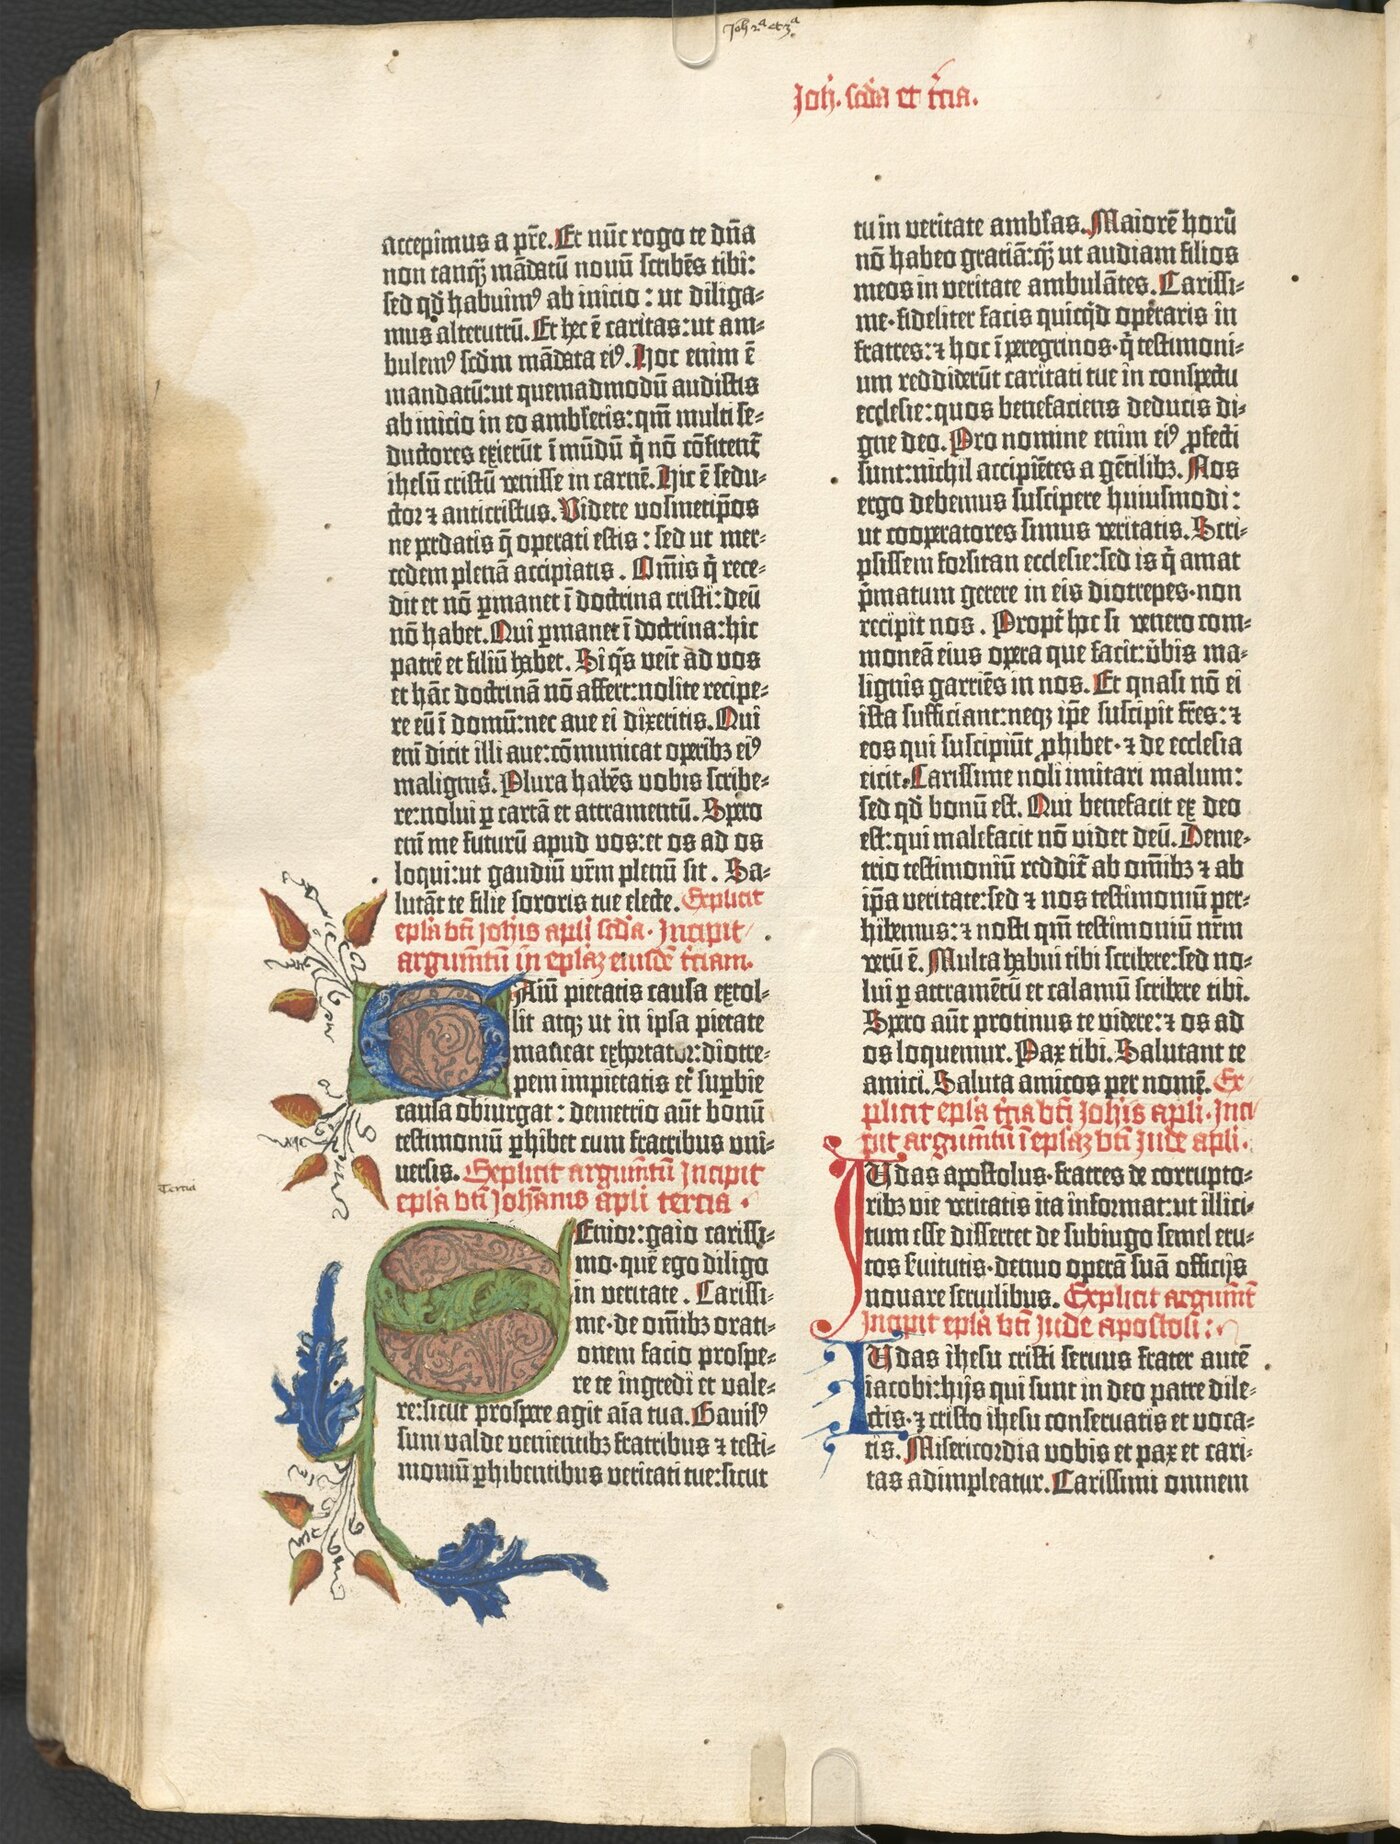 Joh 2ᵃ et 3ᵃ
Joh̄. scd̄a et t̄cia.
accepimus a pr̄e. Et nūc rogo te dn̄a
non tanq̄ꝫ mādatū nouū scribēs tibi:
sed qd̄ habuimꝰ ab inicio : ut diliga-
mus alterutrū. Et hec ē caritas: ut am-
bulemꝰ scdm̄ mādata eiꝰ. Hoc enim ē
mandatū: ut quemadmodū audistis
ab inicio in eo ambl̄etis: qm̄ multi se-
ductores exierūt ī mūdū q̄ nō cōfitent̄
ihesū cristū venisse in carnē. Hic ē sedu-
ctor ⁊ anticristus. Videte vosmetip̄os
ne perdatis q̄ operati estis : sed ut mer-
cedem plenā accipiatis . Om̄is q̄ rece-
dit et nō ꝑmanet ī doctrina cristi: deū
nō habet. Qui ꝑmanet ī doctrina: hic
patrē et filiū habet . Si q̄s venit ad vos
et hāc doctrinā nō affert: nolite recipe-
re eū ī domū: nec aue ei dixeritis. Qui
enī dicit illi aue: cōmunicat operibꝫ eiꝰ
malignis. Plura habēs vobis scribe-
re: nolui ꝑ cartā et attramentū. Spero
enī me futurū apud vos: et os ad os
loqui: ut gaudiū vrm̄ plenū sit . Sa-
lutāt te filie sororis tue electe. Explicit
epl̄a bt̄i joh̄is apl̄i scd̄a . Incipit
argumētū in epl̄aꝫ eiusdē t̄ciam.
Gaiū pietatis causa extol-
lit atqꝫ ut in ipsa pietate
maneat exhortatur: diotre-
pem impietatis et suꝑbie
causa obiurgat : demetrio aūt bonū
testimoniū ꝑhibet cum fratribus uni-
uersis. Explicit argumētū Incipit
epl̄a bt̄i Joh̄anis apl̄i tercia .
Tercia
Senior: gaio carissi-
mo . quē ego diligo
in veritate . Carissi-
me . de om̄ibꝫ orati-
onem facio prospe-
re te ingredi et vale-
re: sicut prospere agit aīa tua. Gauisꝰ
sum valde venientibꝫ fratribus ⁊ testi-
moniū ꝑhibentibus veritati tue: sicut
tu in veritate ambl̄as. Maiorē horū
nō habeo gratiā: q̄ꝫ ut audiam filios
meos in veritate ambulātes. Carissi-
me . fideliter facis quicq̄d operaris in
fratres: ⁊ hoc ī peregrinos . q̄ testimoni-
um reddiderūt caritati tue in conspectu
ecclesie: quos benefaciens deducis di-
gne deo. Pro nomine enim eiꝰ ꝓfecti
sunt: nichil accipiētes a gētilibꝫ. Nos
ergo debemus suscipere huiusmodi :
ut cooperatores simus veritatis. Scri-
psissem forsitan ecclesie: sed is q̄ amat
p̄matum gerere in eis diotrepes . non
recipit nos . Propt̄ hoc si venero com-
moneā eius opera que facit: v̄bis ma-
lignis garriēs in nos. Et quasi nō ei
ista sufficiant: neqꝫ ip̄e suscipit fr̄es: ⁊
eos qui suscipiūt ꝓhibet . ⁊ de ecclesia
eicit. Carissime noli imitari malum:
sed qd̄ bonū est. Qui benefacit ex deo
est: qui malefacit nō videt deū. Deme-
trio testimoniū reddit̄ ab om̄ibꝫ ⁊ ab
ip̄a veritate: sed ⁊ nos testimoniū per-
hibemus: ⁊ nosti qm̄ testimoniū nrm̄
verū ē. Multa habui tibi scribere: sed no-
lui ꝑ attramētū et calamū scribere tibi.
Spero aūt protinus te videre: ⁊ os ad
os loquemur. Pax tibi. Salutant te
amici. Saluta amicos per nomē. Ex-
plicit epl̄a t̄cia bt̄i Joh̄is apl̄i . Inci
pit argumētū ī epl̄aꝫ bt̄i Jude apl̄i .
Iudas apostolus . fratres de corrupto-
ribꝫ vie veritatis ita informat: ut illici-
tum esse dissertet de subiugo semel eru-
tos s̄uitutis . denuo operā suā officijs
nouare seruilibus. Explicit argumēt̄
Incipit epl̄a bt̄i Jude apostoli : .
Iudas ihesu cristi seruus frater autē
iacobi: hijs qui sunt in deo patre dile-
ctis . ⁊ cristo ihesu conseruatis et voca-
tis. Misericordia vobis et pax et cari-
tas adimpleatur. Carissimi omnem